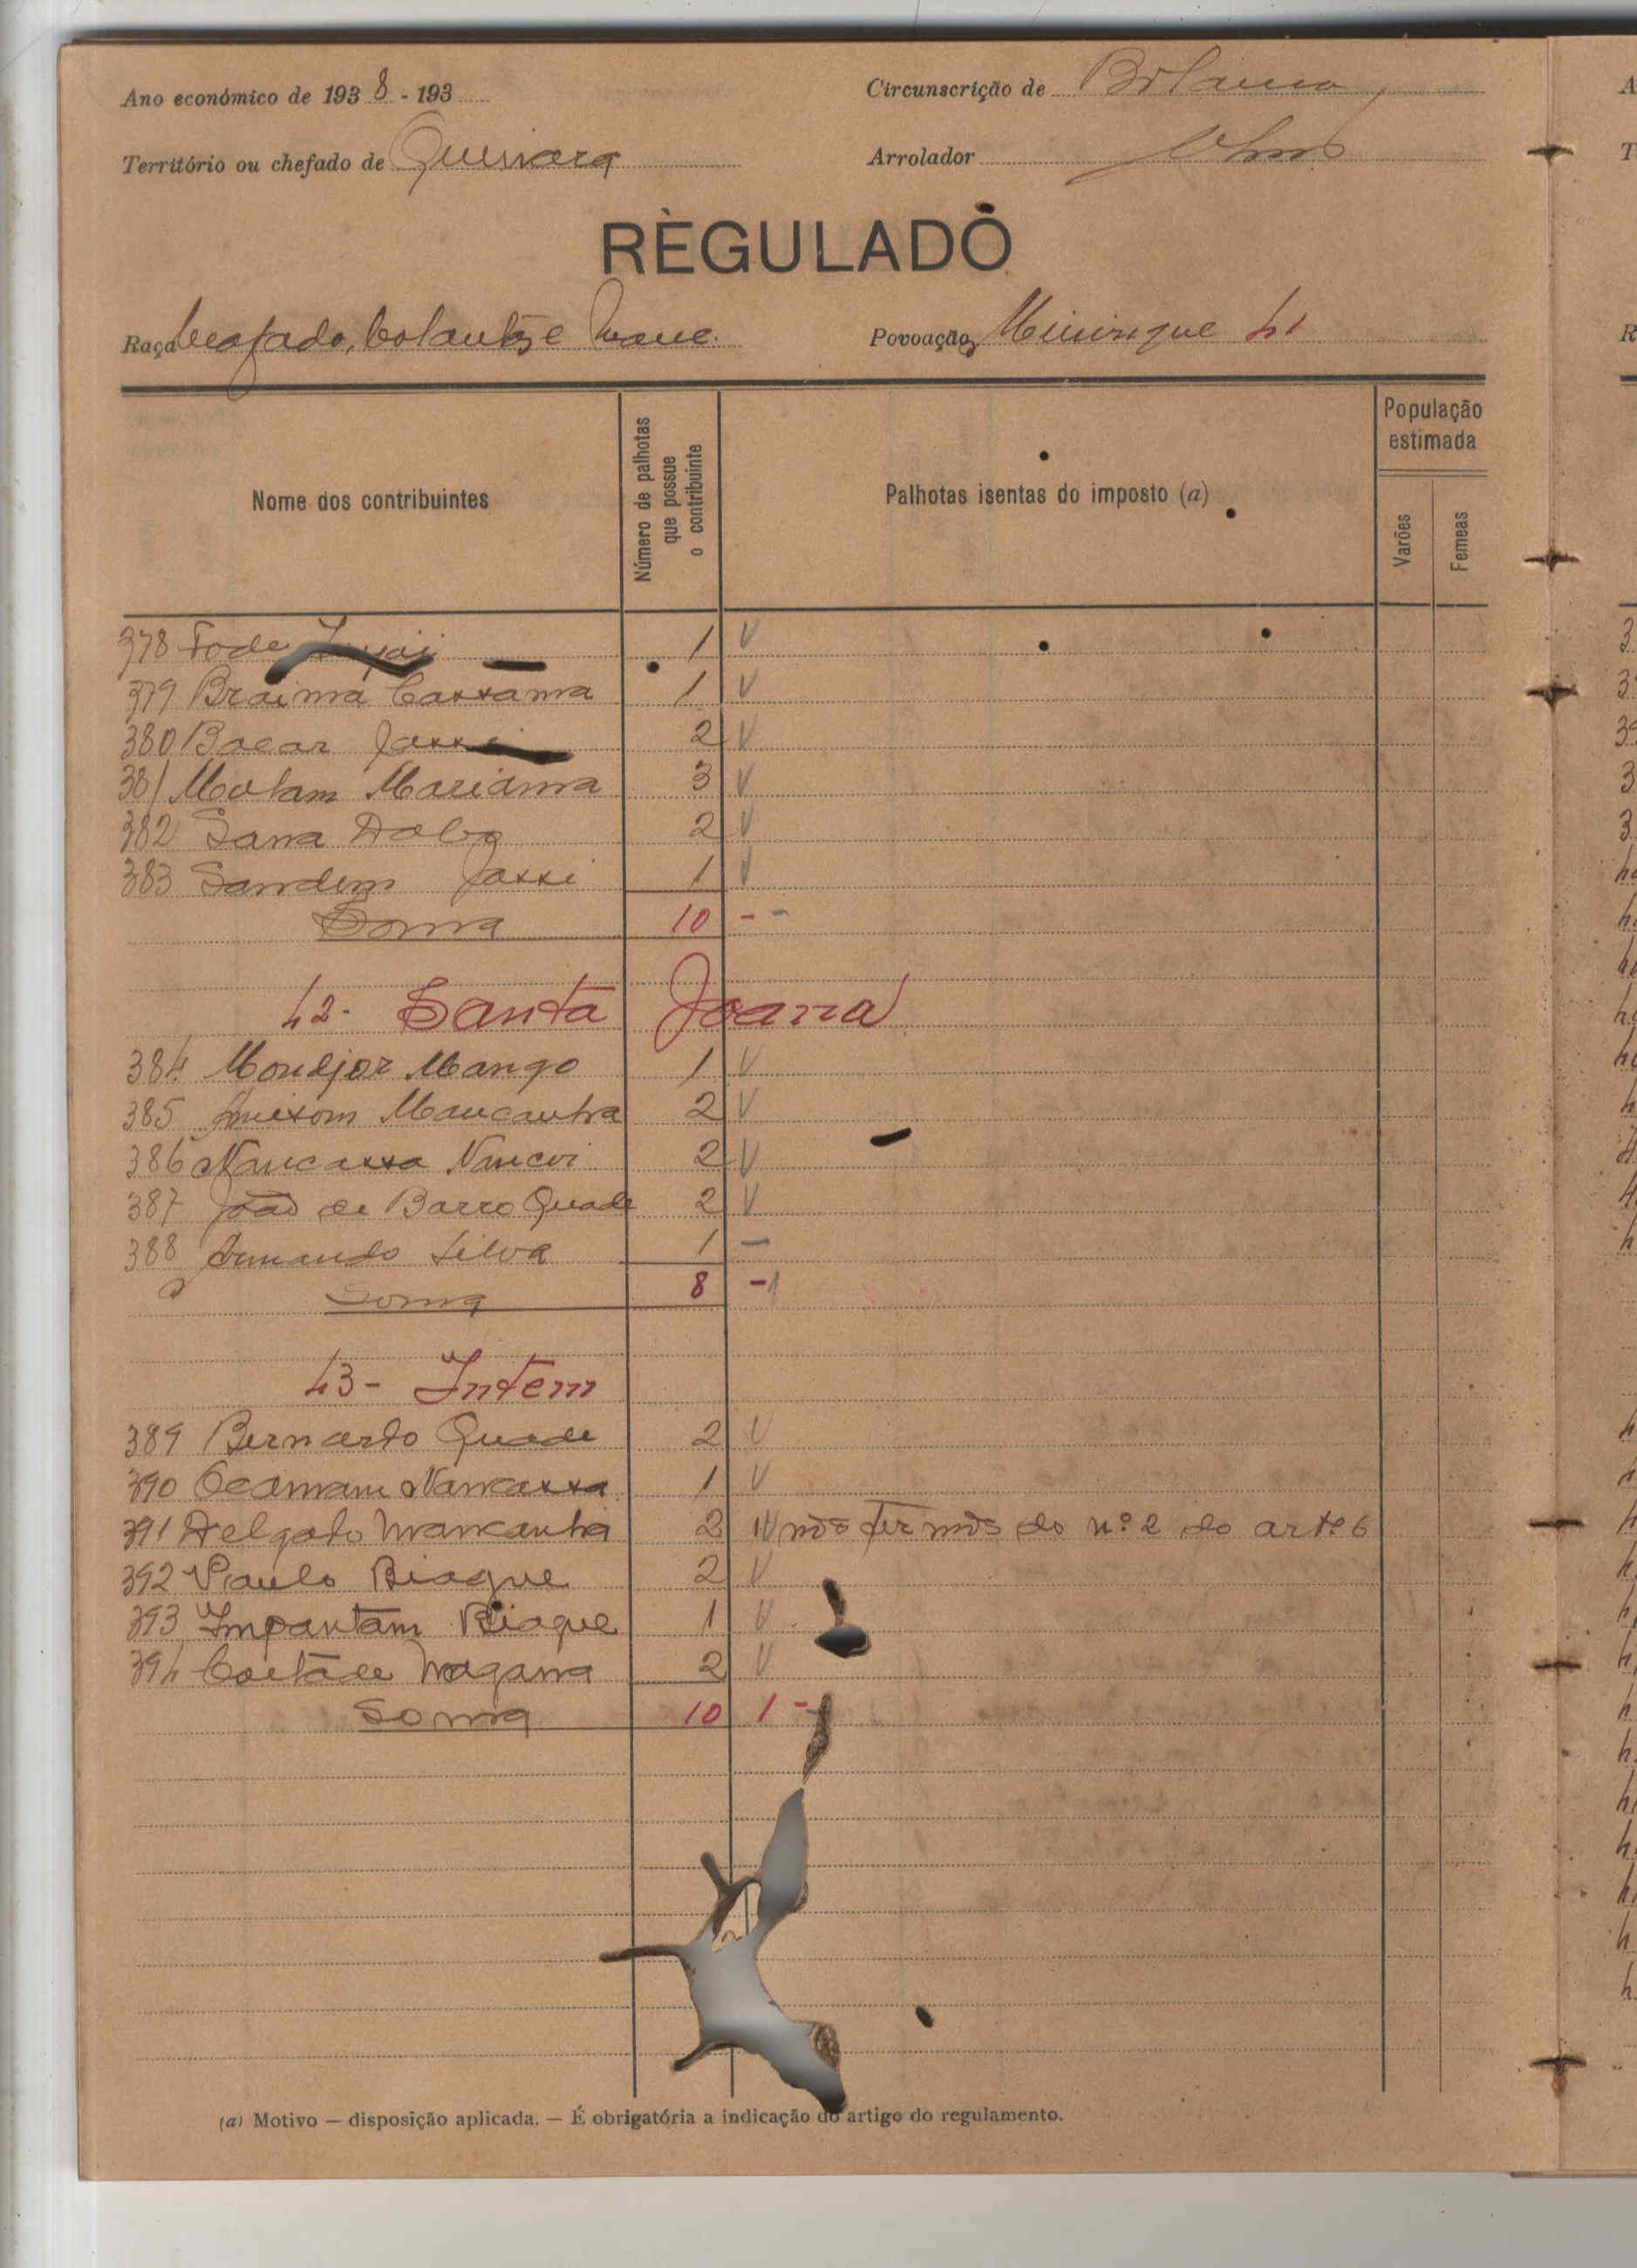 Ano económico de 1938 - 193
Circunscrição de Bolama
Território ou chefado de Quinara
Arrolador
REGULADO
Raça Beafada,
Povoação 41
Nome dos contribuintes
Número de palhotas que possue o contribuinte
Palhotas isentas do imposto (a)
População estimada
Varões
Femeas
378 Fode 1 V
379 Braima Cassama 1 V
380 Bacar Jassi 2 V
381 Malam Mariama 3 V
382 Sana Dabo 2 V
383 Sandem Jassi 1 V
Soma 10 - -
42 - Santa Joana
384 Mondjor Mango 1 V
385 Mancanha 2 V
386 Nancassa Nancoi 2 V
387 João de Barro Quade 2 V
388 Armando Silva 1 -
Soma 8 - 1
43 - Intem
389 Bernardo Quade 2 V
390 Ocamam Nancassa 1 V
391 Delgado Mancanha 2 1V nos termos do nº 2 do artº 6
392 Paulo Biaque 2 V
393 Impantam Biaque 1 V
394 Caetade Nagana 2 V
Soma 10 1 -
(a) Motivo — disposição aplicada. — É obrigatória a indicação do artigo do regulamento.